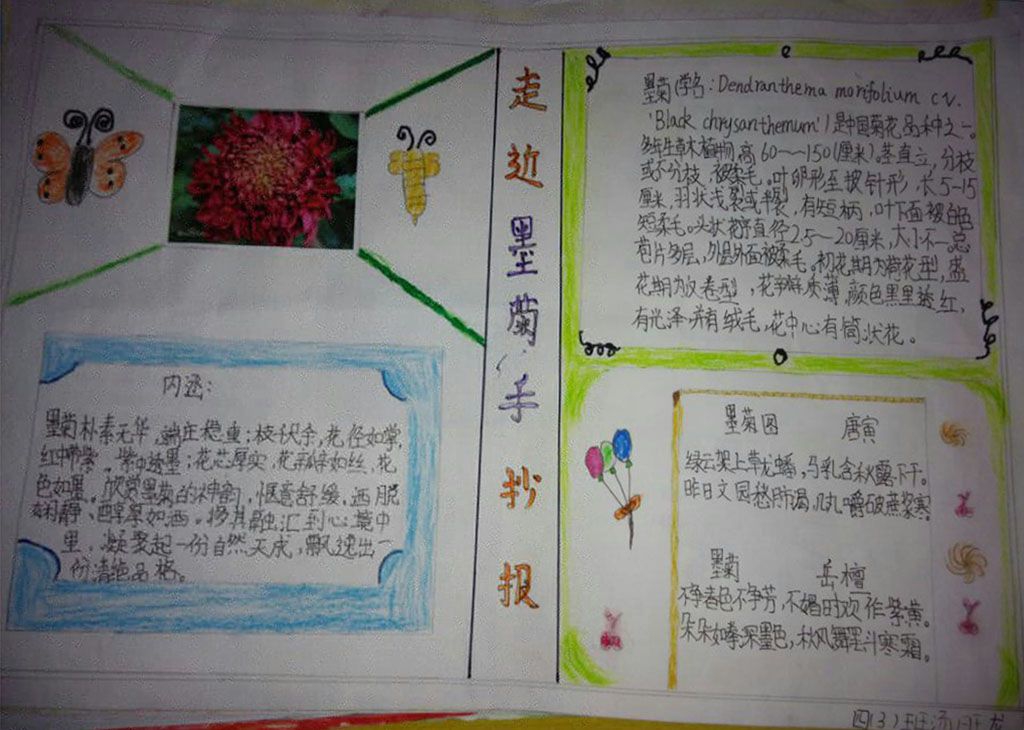 走近墨菊手抄报
墨菊(学名:Dendranthema morifolium cv.
'Black chrysanthemum')是中国菊花品种之一。
多年生草本植物,高60~150(厘米)。茎直立,分枝
或不分枝,被柔毛。叶卵形至披针形,长5-15
厘米,羽状浅裂或半裂,有短柄,叶下面被白色
短柔毛。头状花序直径2.5~20厘米,大小不一。总
苞片多层,外层外面被柔毛。初花期为荷花型,盛
花期为反卷型,花瓣质薄,颜色黑里透红,
有光泽,并有绒毛,花中心有筒状花。
内涵:
墨菊朴素无华,端庄稳重;枝状伞,花径如掌,
红中带紫,紫中透墨;花芯厚实,花瓣如丝,花
色如墨。欣赏墨菊的神韵,惬意舒缓,洒脱
闲静、醇厚如酒。将其融汇到心境中
里,凝聚起一份自然天成,飘逸出一
份清绝品格。
墨菊图 唐寅
绿云架上草龙蟠,马乳含秋露不干。
昨日文园愁肺渴,几丸嚼破蔗浆寒
墨菊 岳檀
不争春色不争芳,不媚时欢作紫黄。
朵朵如拳深墨色,秋风舞罢斗寒霜。
四(3)班汤